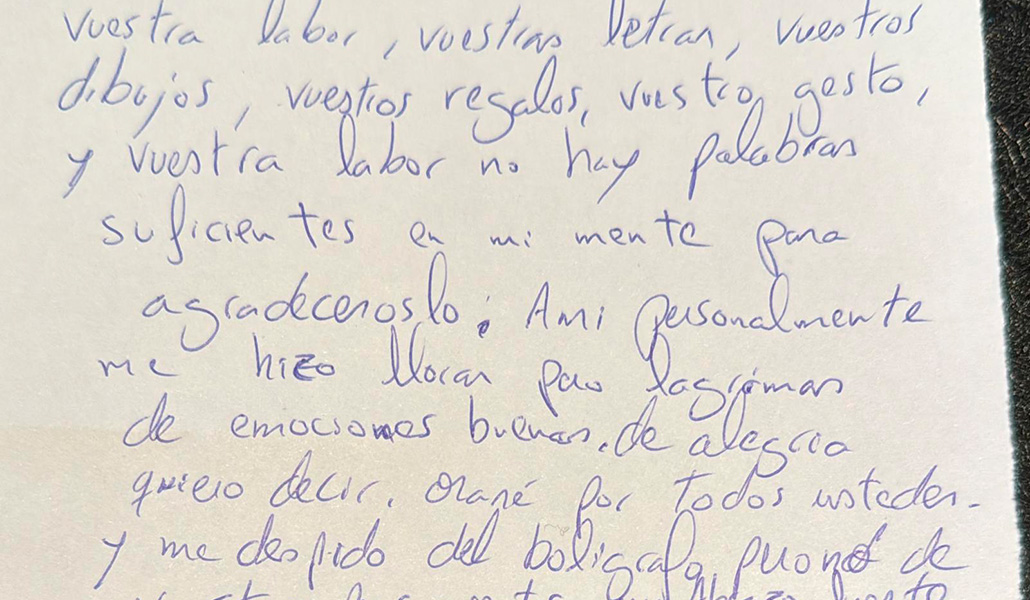 vuestra labor, vuestras letras, vuestros
dibujos, vuestros regalos, vuestro gesto,
y vuestra labor no hay palabras
suficientes en mi mente para
agradeceroslo; Ami personalmente
me hizo llorar pero lagrimas
de emociones buenas, de alegria
quiero decir, oraré por todos ustedes.
y me despido del boligrafo, pero no de